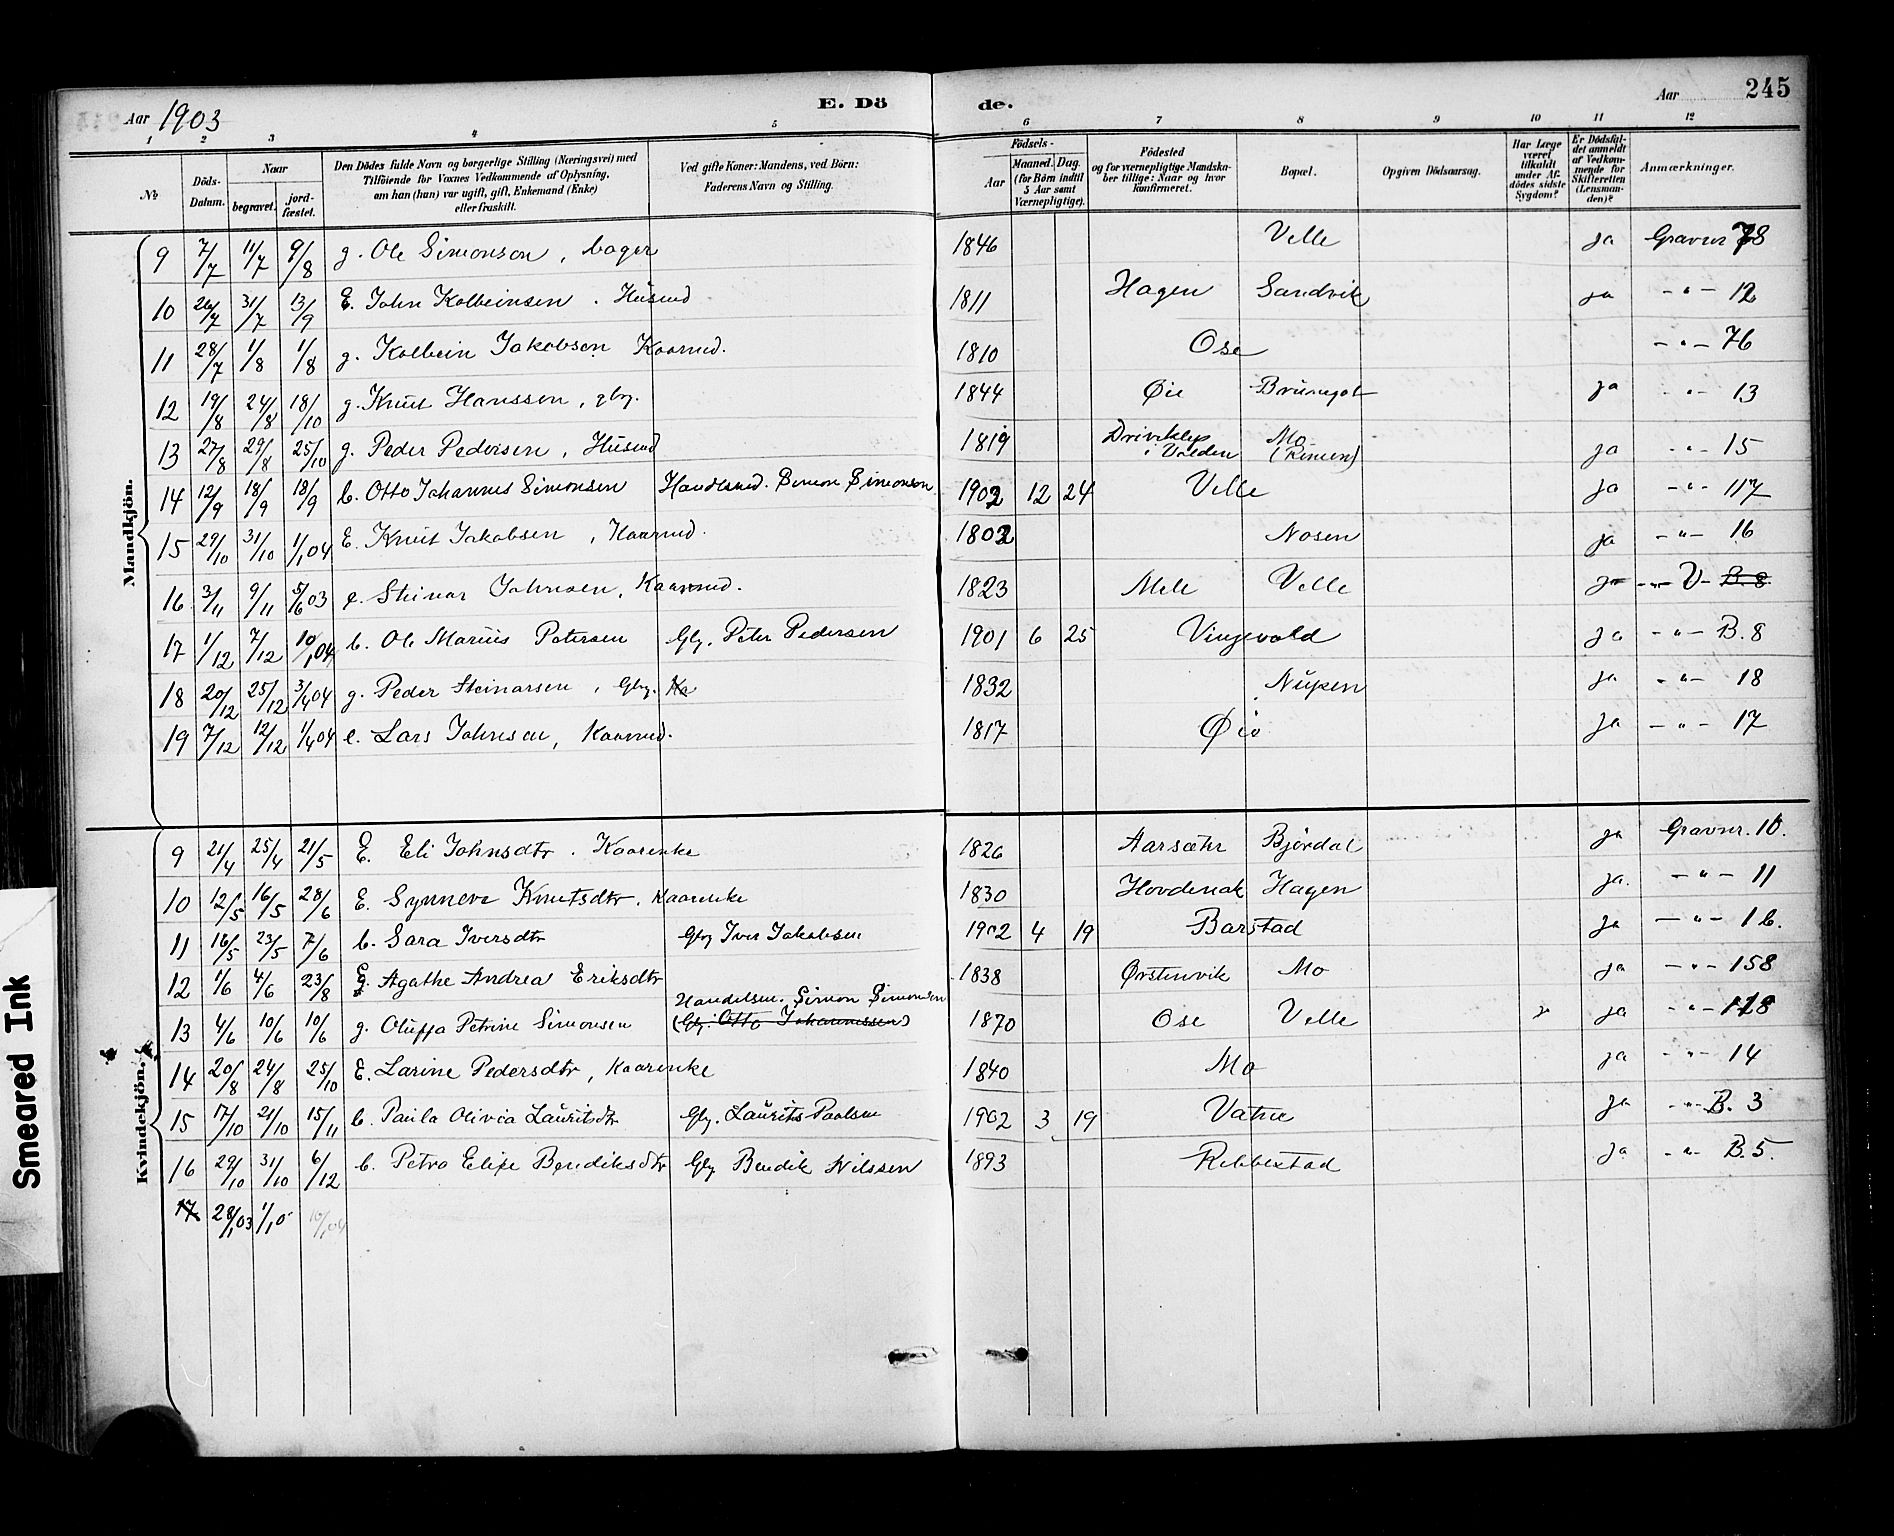 245
Aar 1903 E. Dö de. Aar
1 2 3 4 5 6 7 8 9 10 11 12
№ Döds-Datum. Naar begravet. jord-fæstet. Den Dødes fulde Navn og borgerlige Stilling (Næringsvei) med Tilföiende for Voxnes Vedkommende af Oplysning, om han (hun) var ugift, gift, Enkemand (Enke) eller fraskilt. Ved gifte Koner: Mandens, ved Börn: Faderens Navn og Stilling. Födsels- Aar Maaned. Dag. (for Börn indtil 5 Aar samt Værnepligtige). Födested og for værnepligtige Mandskaber tillige: Naar og hvor konfirmeret. Bopæl. Opgiven Dödsaarsag. Har Læge været tilkaldt under Afdödes sidste Sygdom? Er Dödsfaldet anmeldt af Vedkommende for Skifteretten (Lensmanden)? Anmærkninger.
Mandkjön.
9 7/7 11/7 9/8 g. Ole Simonson, bager 1846 Velle ja Gravnr 78
10 26/7 31/7 13/9 E. John Kolbeinsen. Husmd 1811 Hagen Sandvik ja - " - 12
11 28/7 1/8 1/8 g. Kolbein Jakobsen Kaarmd. 1810 Ose - " - 76
12 19/8 24/8 18/10 g. Knut Hanssen, gbr. 1844 Øie ja - " - 13
13 27/8 29/8 25/10 g. Peder Pedersen, Husmd 1819 i Volden Mo ja - " - 15
14 12/9 18/9 18/9 b. Otto Johannes Simonsen Handelsmd. Simon Simonson 1902 12 24 Velle ja - " - 117
15 29/10 31/10 1/1 04 E. Knut Jakobsen, Kaarmd. 1802 Nosen ja - " - 16
16 3/11 9/11 5/6 03 e. Steinar Johnsen, Kaarmd. 1823 Mele Velle ja - " - V- B. 8
17 1/12 7/12 10/1 04 b. Ole Marius Petersen Gbr. Peter Pedersen 1901 6 25 Vingevold ja - " - B. 8
18 20/12 25/12 3/4 04 g. Peder Steinarsen, Gbr. Ka 1832 Nupen ja - " - 18
19 7/12 12/12 1/4 04 e. Lars Johnsen, Kaarmd. 1817 Øie ja - " - 17
Kvindekjön.
9 21/4 25/4 21/5 E. Eli Johnsdtr. Kaarenke 1826 Aarsæthr Bjørdal ja Gravnr. 10.
10 12/5 16/5 28/6 E. Synneve Knutsdtr. Kaarenke 1830 Hovdenak Hagen ja. - " - 11
11 16/5 23/5 7/6 b. Sara Iversdtr Gbr Iver Jakobsen 1902 4 19 Barstad ja - " - 16.
12 1/6 4/6 23/8 g. Agathe Andrea Eriksdtr 1838 Ørstenvik Mo ja - " - 158
13 4/6 10/6 10/6 g. Oluffa Petrine Simonsen Handelsm. Simon Simonsen (Gbr. Otto Johannessen) 1870 Ose Velle ja - " - 118
14 20/8 24/8 25/10 E. Larine Pedersdtr, Kaarenke 1840 Mo ja - " - 14
15 17/10 21/10 15/11 b. Paula Olivia Lauritsdtr Gbr. Laurits Paulsen 1902 3 19 Vatne ja - " - B. 3
16 29/10 31/10 6/12 b. Petra Elise Bendiksdtr Gbr Bendik Nilssen 1893 Rebbestad ja - " - B. 5.
17 28/1 03 1/10 10/1 04
Smeared Ink